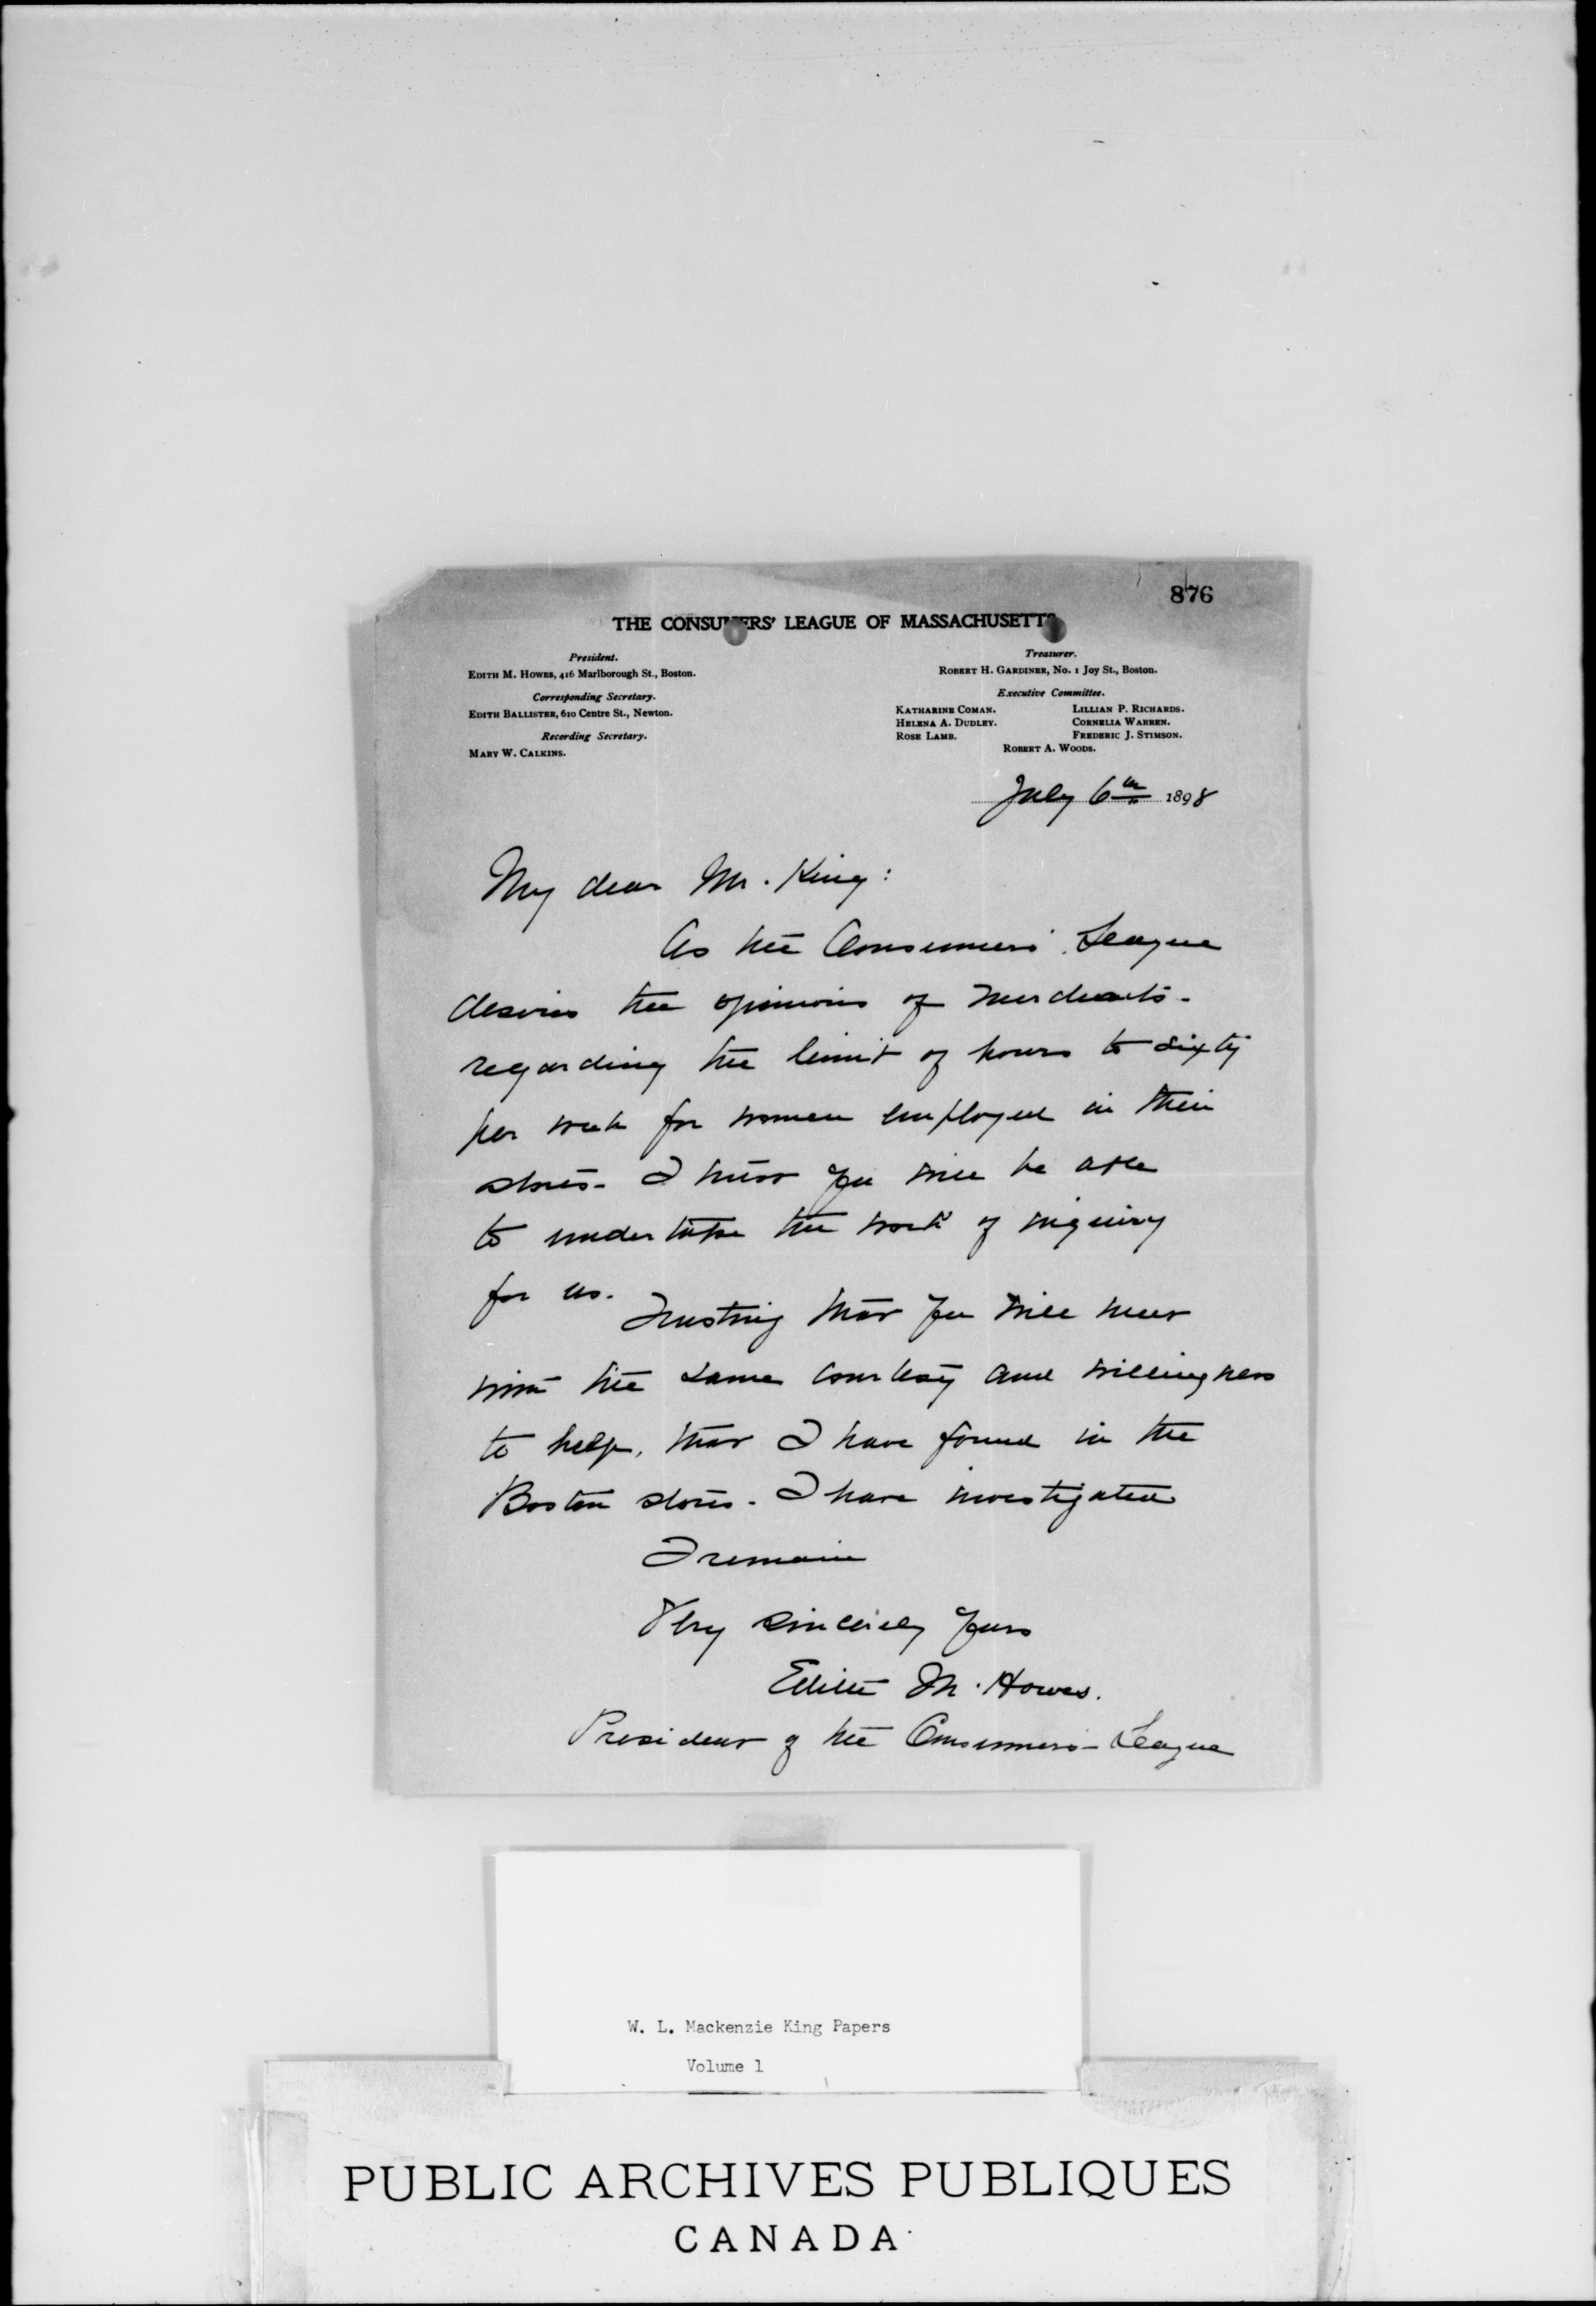 876
THE CONSUMERS' LEAGUE OF MASSACHUSETTS
President.
EDITH M. HOWES, 416 Marlborough St., Boston.
Corresponding Secretary.
EDITH BALLISTER, 610 Centre St., Newton.
Recording Secretary.
MARY W. CALKINS.
Treasurer.
ROBERT H. GARDINER, No. 1 Joy St., Boston.
Executive Committee.
KATHARINE COMAN. LILLIAN P. RICHARDS.
HELENA A. DUDLEY. CORNELIA WARREN.
ROSE LAMB. FREDERIC J. STIMSON.
ROBERT A. WOODS.
July 6th 1898
My dear Mr. King:
As the Consumers' League
desires the opinions of merchants -
regarding the limit of hours to sixty
per week for women employed in their
stores - I trust you will be able
to undertake the work of inquiry
for us.
Trusting that you will meet
with the same courtesy and willingness
to help, that I have found in the
Boston stores - I have investigated
I remain
Very sincerely yours
Edith M. Howes.
President of the Consumers - League
W. L. Mackenzie King Papers
Volume 1
PUBLIC ARCHIVES PUBLIQUES
CANADA